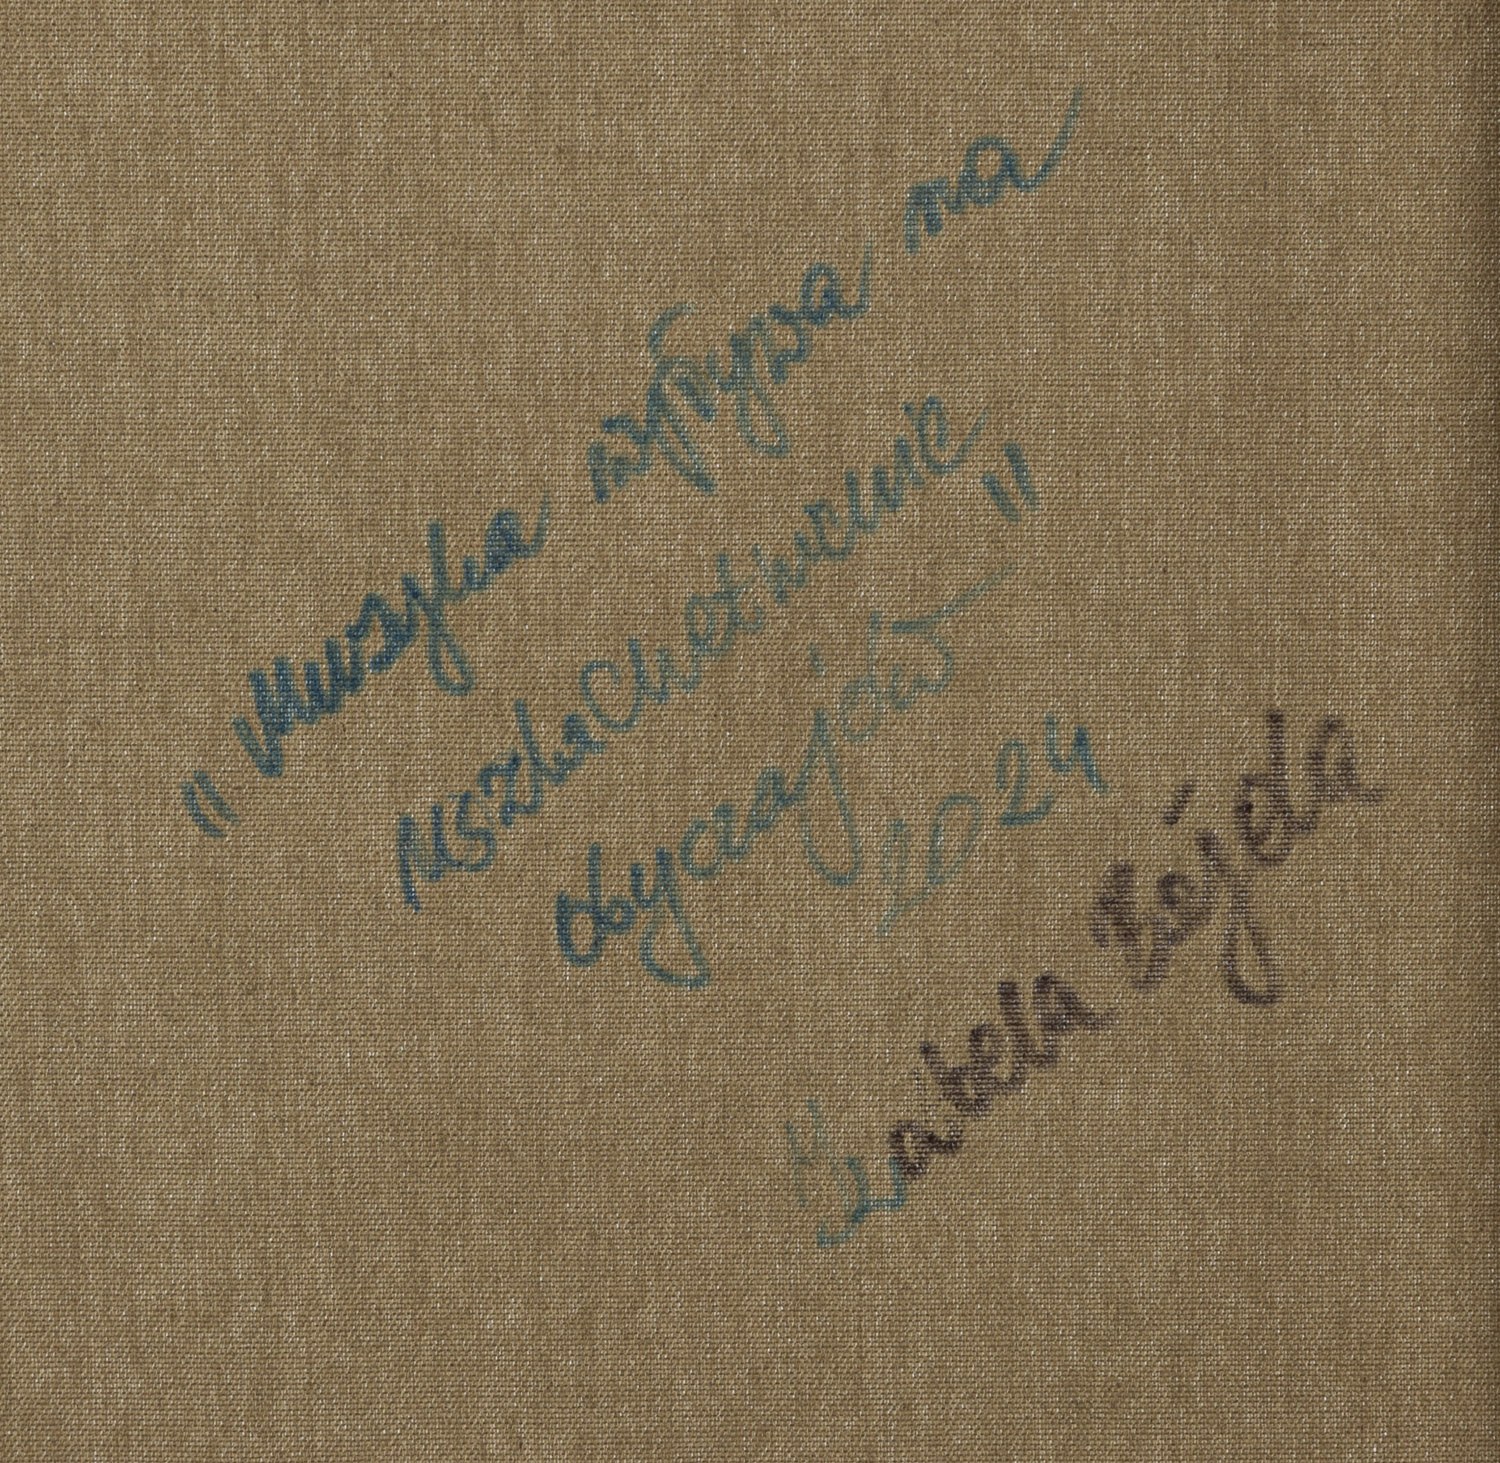 "muzyka wpływa na
uszlachetnienie"
obyczajów
2024
Izabela